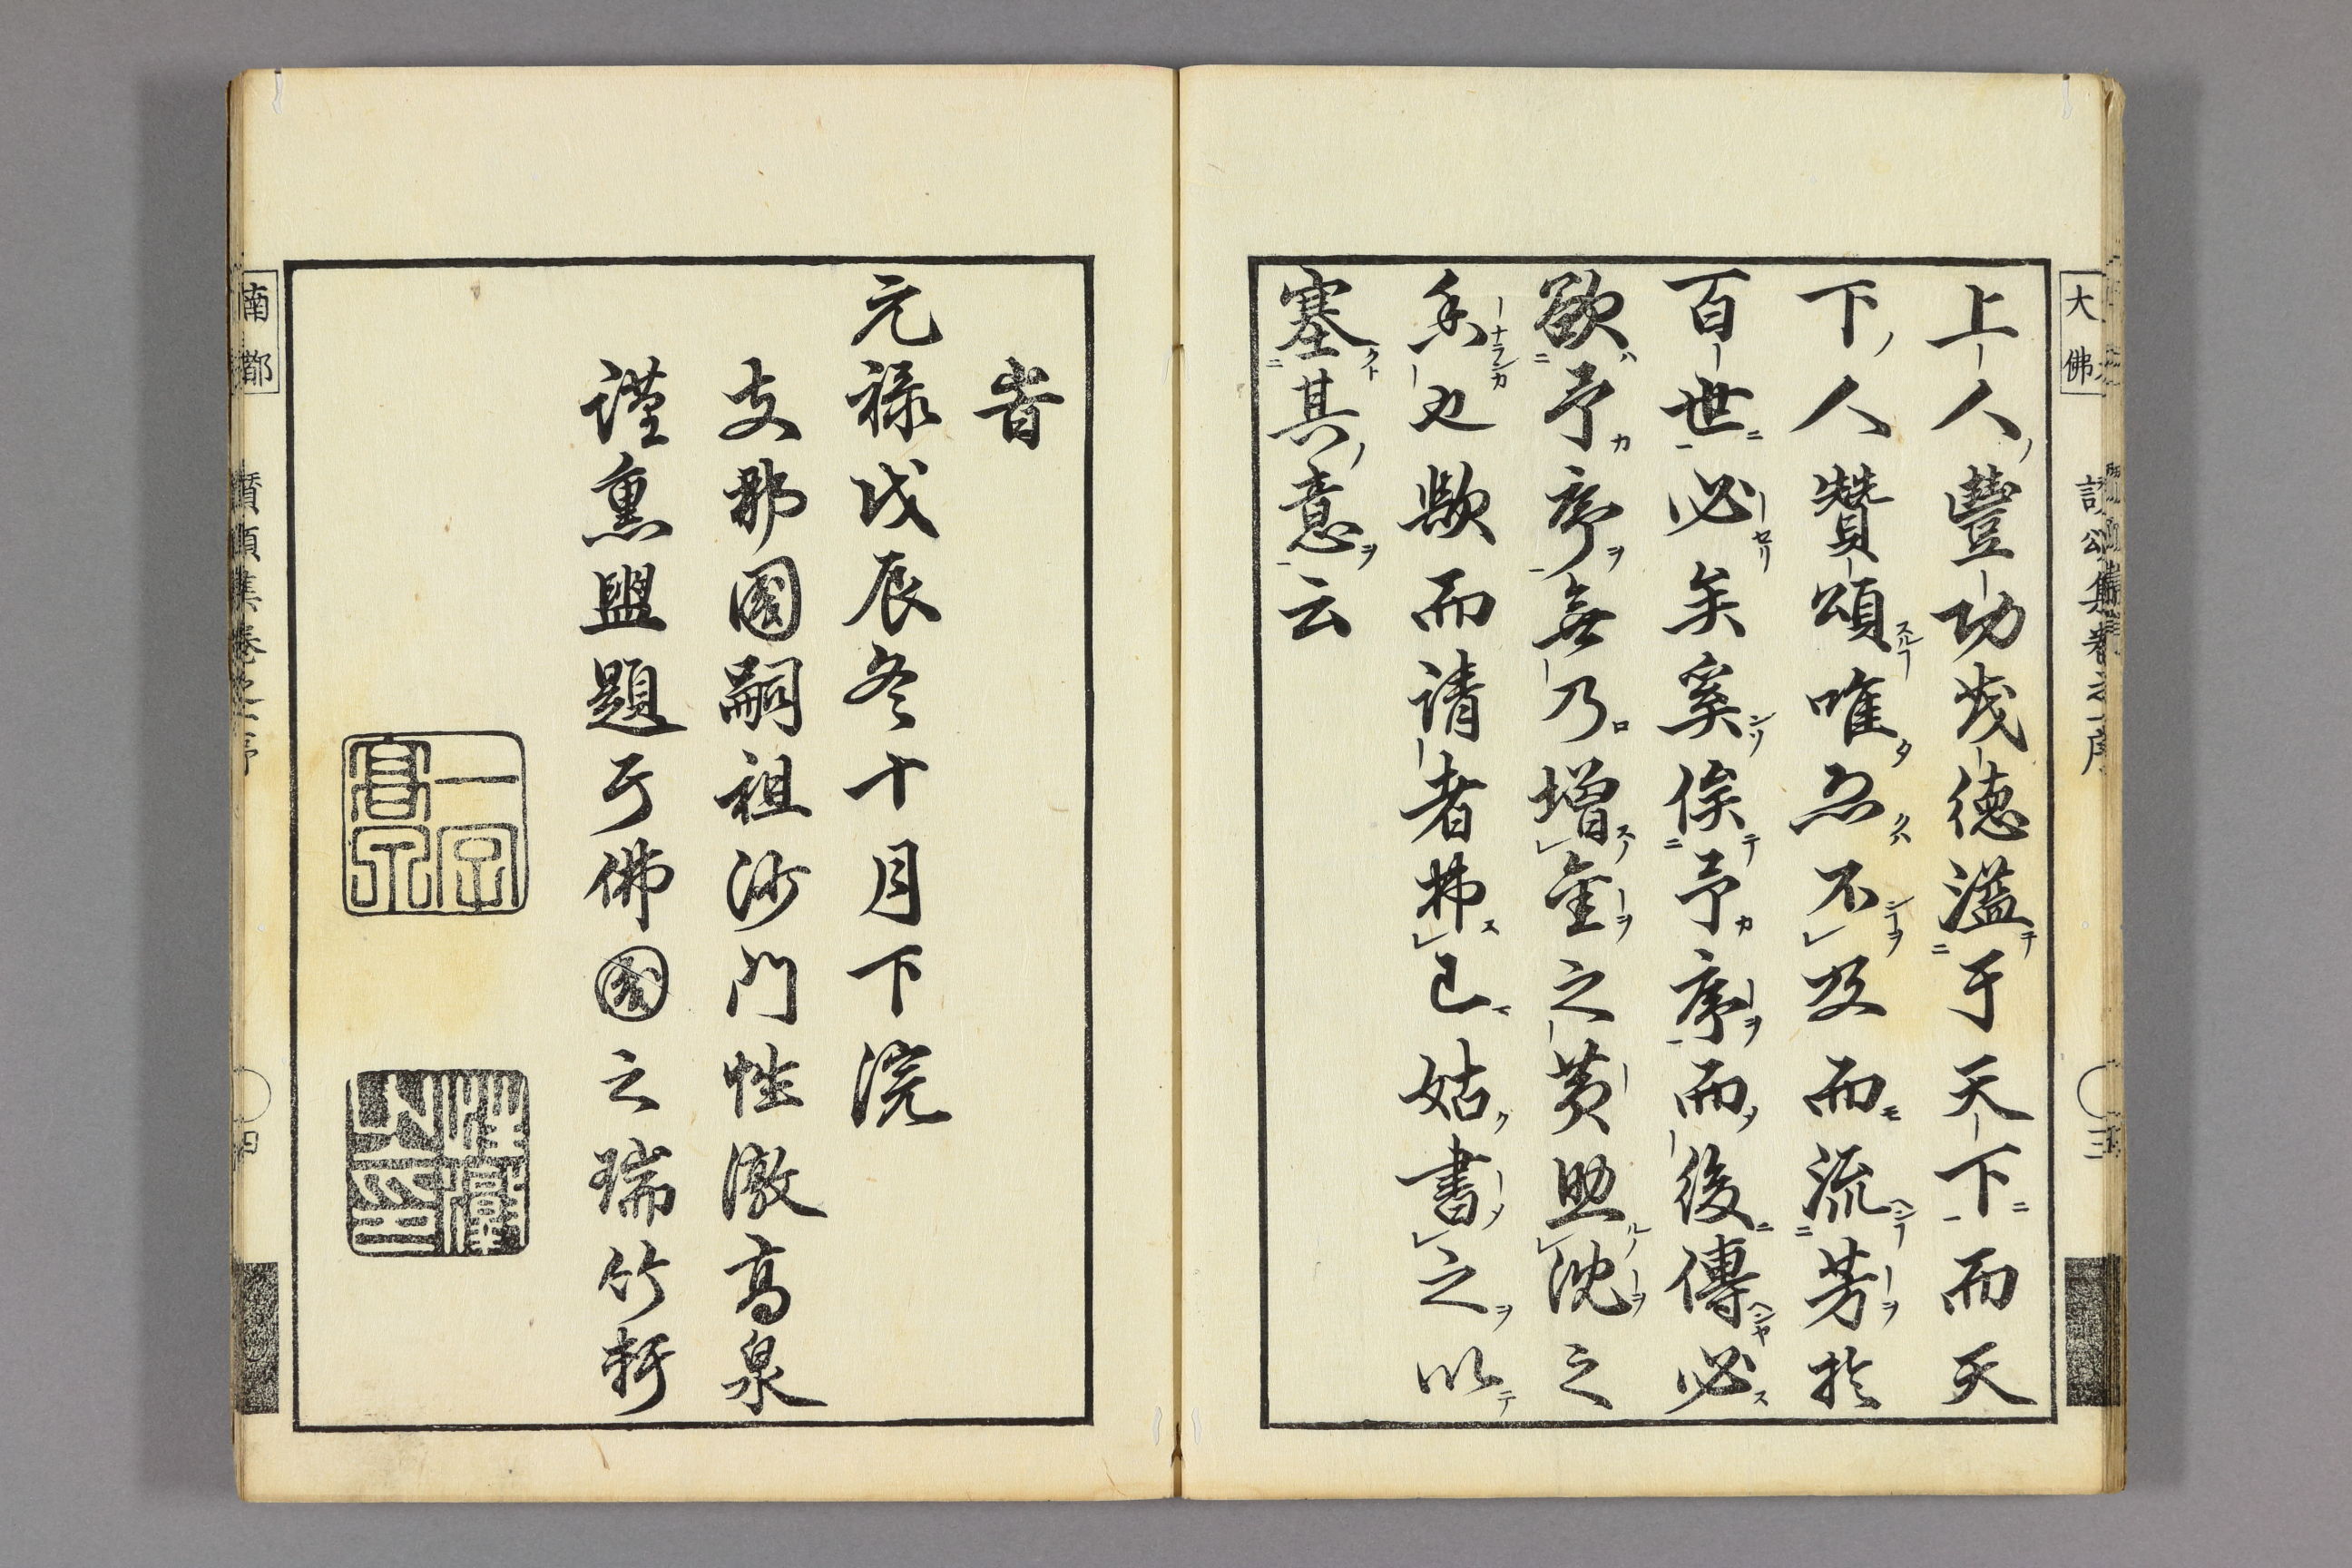 大佛
讃頌集卷之一序
三
上人豐功茂德溢于天下而天
下人贊頌唯恐不及而流芳於
百世必矣奚俟予序而後傳必
欲予序無乃增金之黄助沈之
香也歟而請者弗已姑書之以
塞其意云
旹
元禄戊辰冬十月下浣
支那國嗣祖沙門性潡高泉
謹熏盥題于佛國之瑞竹軒
一字高泉
南都
讃頌集卷之一序
四